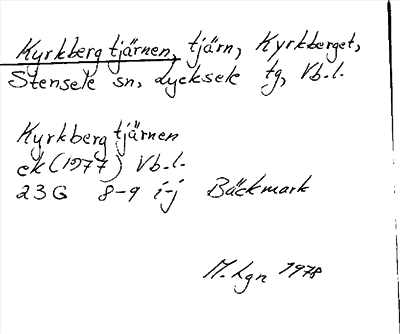 Kyrkbergtjärnen, tjärn, Kyrkberget,
Stensele sn, Lycksele tg, Vb.l.
Kyrkbergtjärnen
ek (1977) Vb.l.
23G 8-9 i-j Bäckmark
M. Lgn 1978